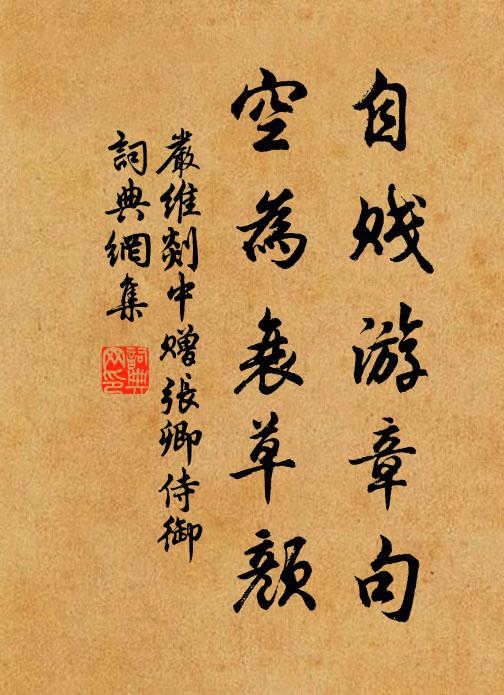 自賤游章句
空為衰草顏
嚴維剡中贈張卿侍御
詞典網集
詞典
网印